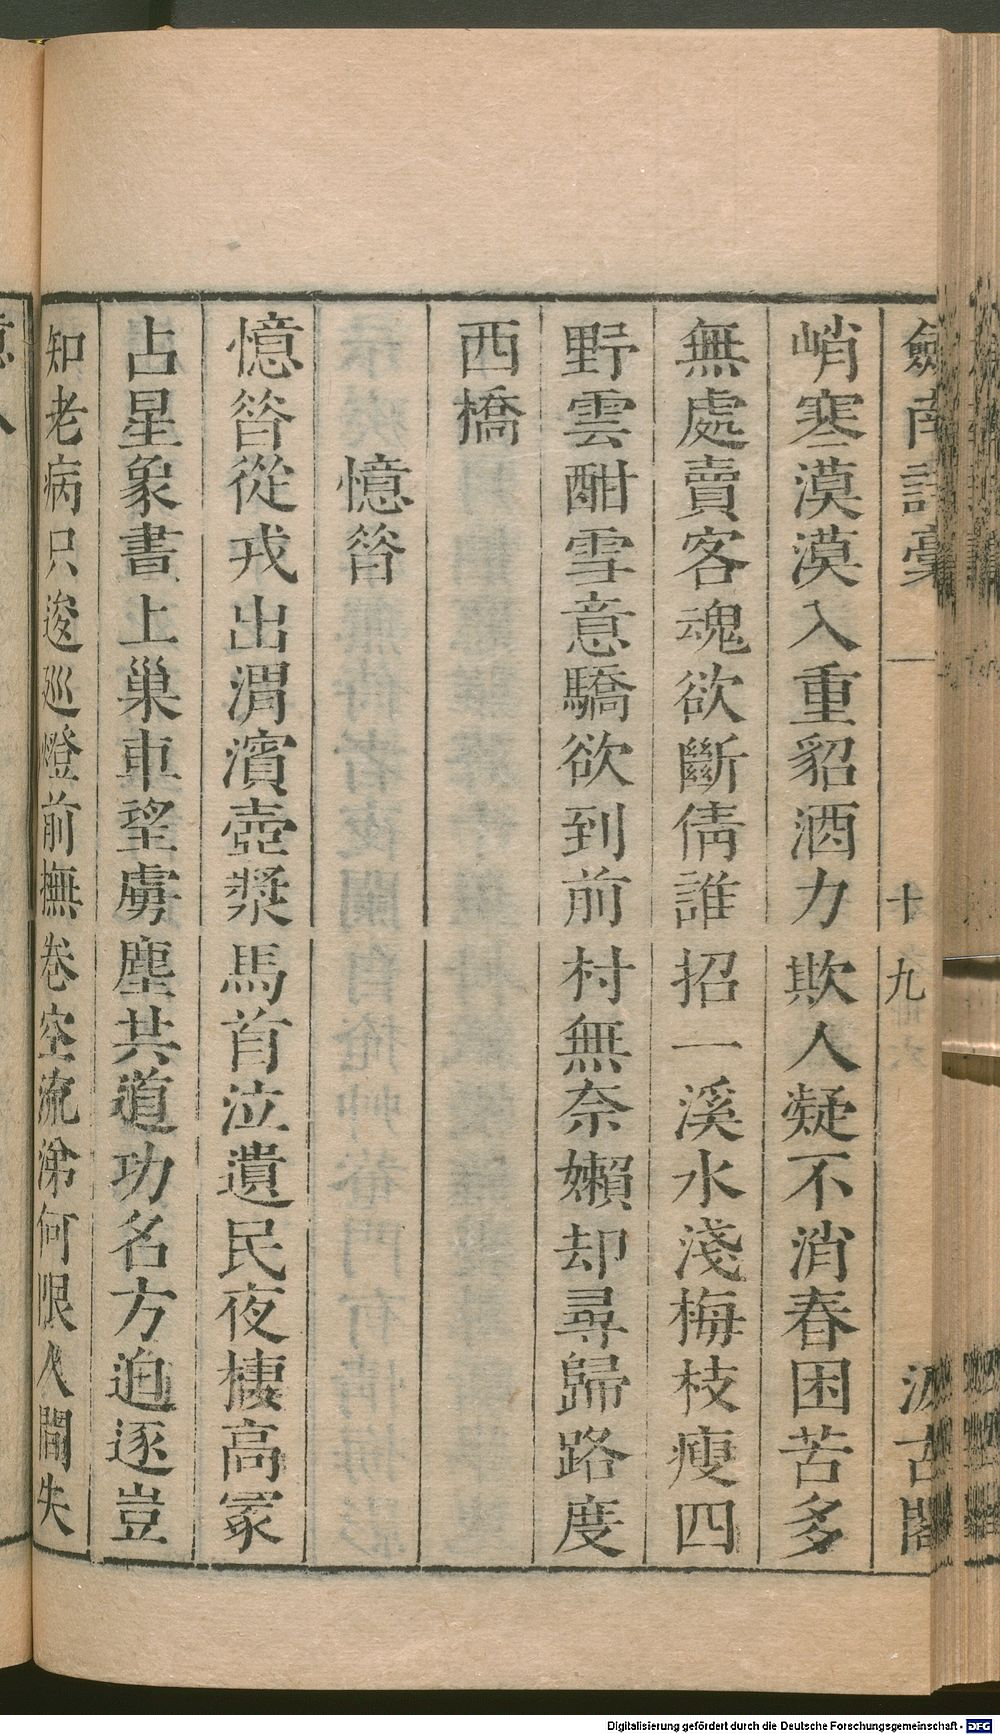 劍南詩稾 十九 汲古閣
峭寒漠漠入重貂酒力欺人疑不消春困苦多
無處賣客魂欲斷倩誰招一溪水淺梅枝瘦四
野雲酣雪意驕欲到前村無奈嬾却尋歸路度
西橋
憶昝
憶昝從戎出渭濱壺漿馬首泣遺民夜棲高冢
占星象晝上巢車望虜塵共道功名方迫逐豈
知老病只逡巡燈前撫卷空流涕何限人閒失
Digitalisierung gefördert durch die Deutsche Forschungsgemeinschaft - DFG